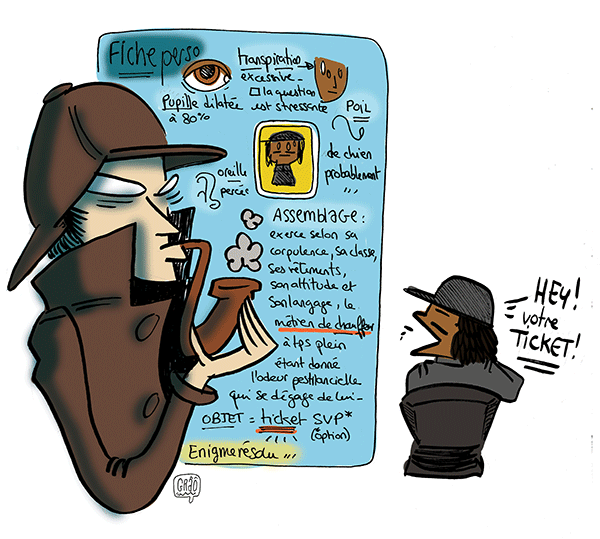 Fiche perso
Pupille dilatée
à 80%
transpiration
excessive -
□ la question
est stressante
POIL
de chien
probablement
...
oreille
percée
ASSEMBLAGE :
exerce selon sa
corpulence, sa classe,
ses vêtements,
son attitude et
son langage, le
métier de chauffeur
à tps plein
étant donné
l'odeur pestilancielle
qui se dégage de lui -
OBJET = ticket SVP*
(*option)
Enigme résolu ...
HEY!
votre
TICKET!
GRAO